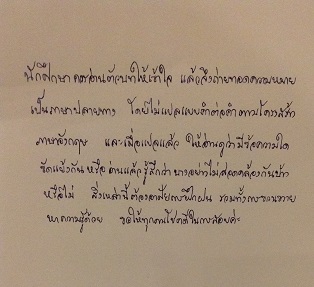 นักศึกษา ควรอ่านตัวบทให้เข้าใจ แล้วจึงถ่ายทอดความหมาย
เป็นภาษาปลายทาง โดยไม่แปลแบบคำต่อคำตามโครงสร้าง
ภาษาอังกฤษ และเมื่อแปลแล้ว ให้อ่านดูว่ามีข้อความใด
ขัดแย้งกัน หรืออ่านแล้วรู้สึกว่า บางอย่างไม่สอดคล้องกันบ้าง
หรือไม่ สิ่งเหล่านี้ต้องอาศัยการฝึกฝน รวมทั้งการแสวง
หาความรู้ด้วย ขอให้ทุกคนโชคดีในการสอบค่ะ